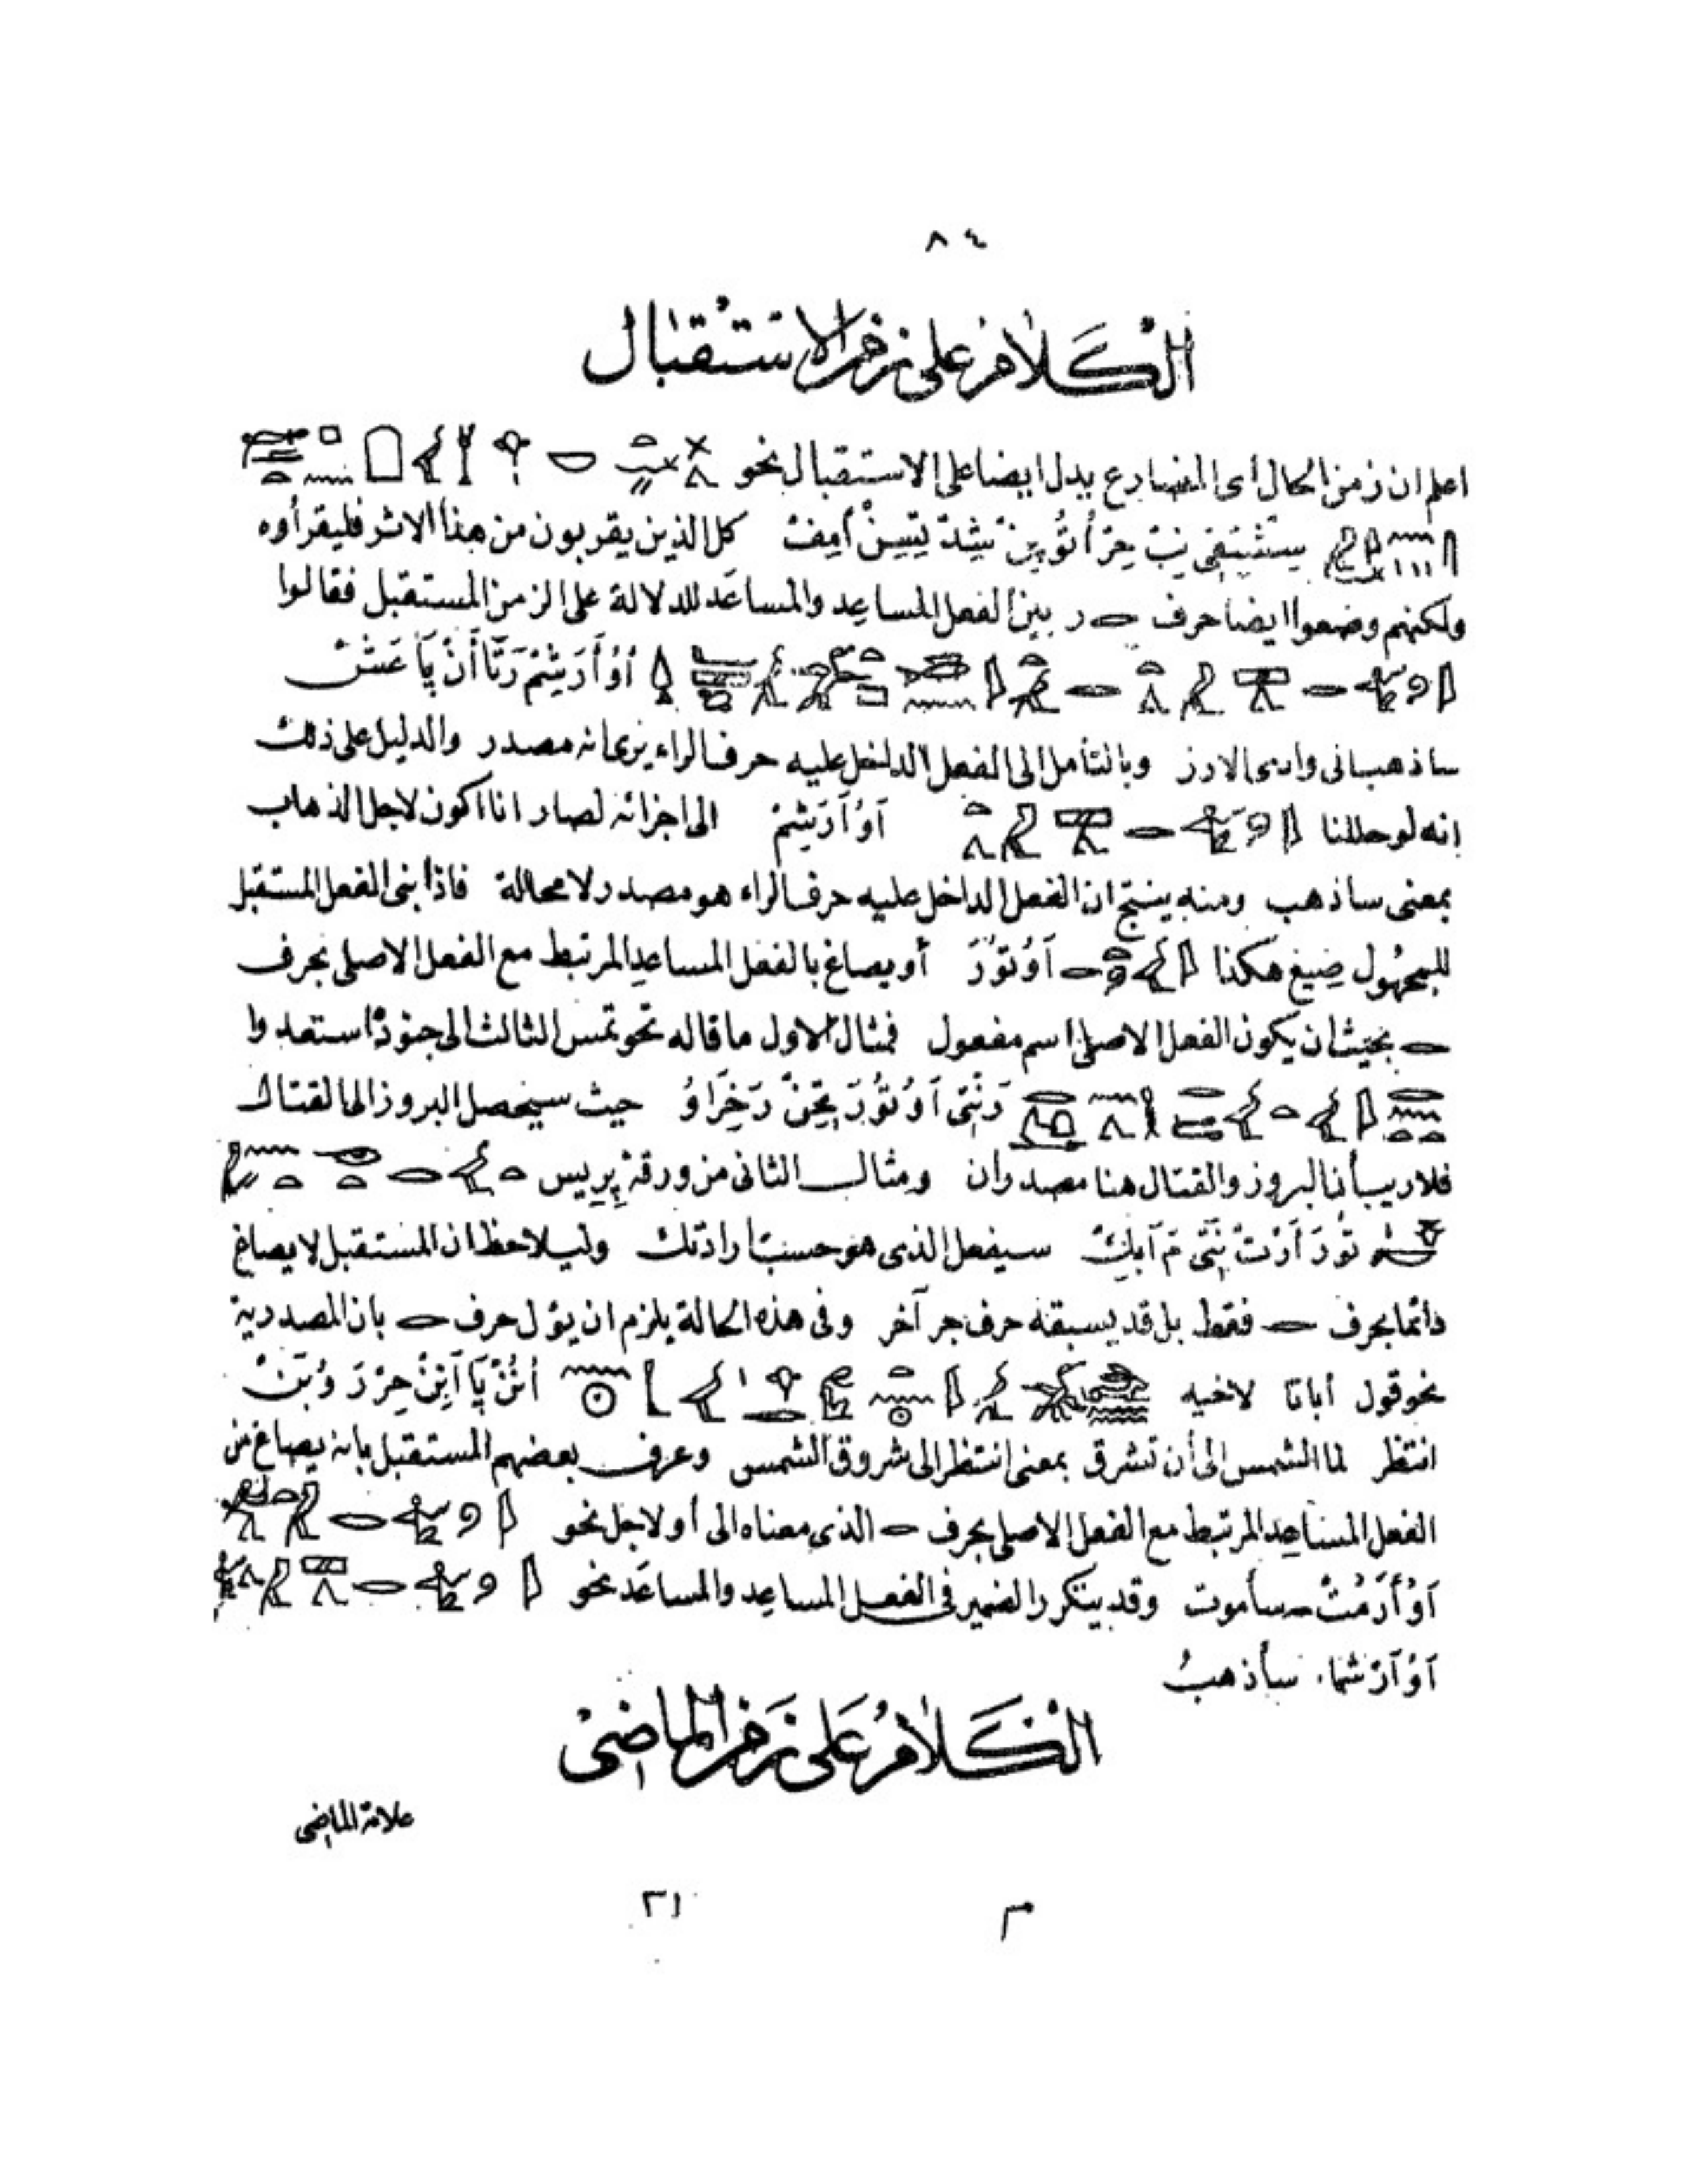 ٨٤
الكَلَامُ عَلَى زَمَنِ الاسْتِقْبَال
اعلم ان زمن الحال أى المضارع يدل ايضا على الاستقبال نحو
كل الذين يقربون من هذا الاثر فليقرأوه
ولكنهم وضعوا ايضا حرف ر بين الفعل المساعِد والمساعَد للدلالة على الزمن المستقبل فقالوا
ساذهب انى وادى الارز وبالتأمل الى الفعل الداخل عليه حرف الراء يرى انه مصدر والدليل على ذلك
انه لو حللنا الى اجزائه لصار انا اكون لاجل الذهاب
بمعنى ساذهب ومنه ينتج ان الفعل الداخل عليه حرف الراء هو مصدر لا محالة فاذا بنى الفعل المستقبل
للمجهول صيغ هكذا أَوُتُورَ أو يصاغ بالفعل المساعد المرتبط مع الفعل الاصلى بحرف
بحيث ان يكون الفعل الاصلى اسم مفعول فمثال الاول ما قاله تحوتمس الثالث الى جنوده استعدوا
حيث سيحصل البروز الى القتال
فلا ريب أن البروز والقتال هنا مصدران ومثال الثانى من ورقة بريس
سيفعل الذى هو حسب ارادتك وليلاحظ ان المستقبل لا يصاغ
دائما بحرف فقط بل قد يسبقه حرف جر آخر وفى هذه الحالة يلزم ان يؤل حرف بان المصدرية
نحو قول أبانا لاخيه
انتظر لما الشمس الى أن تشرق بمعنى انتظر الى شروق الشمس وعرف بعضهم المستقبل بانه يصاغ من
الفعل المساعد المرتبط مع الفعل الاصلى بحرف الذى معناه الى أو لاجل نحو
سأموت وقد يتكرر الضمير فى الفعل المساعِد والمساعَد نحو
سأذهبُ
الكَلَامُ عَلَى زَمَنِ المَاضِى
علامة الماضى
م ٢١